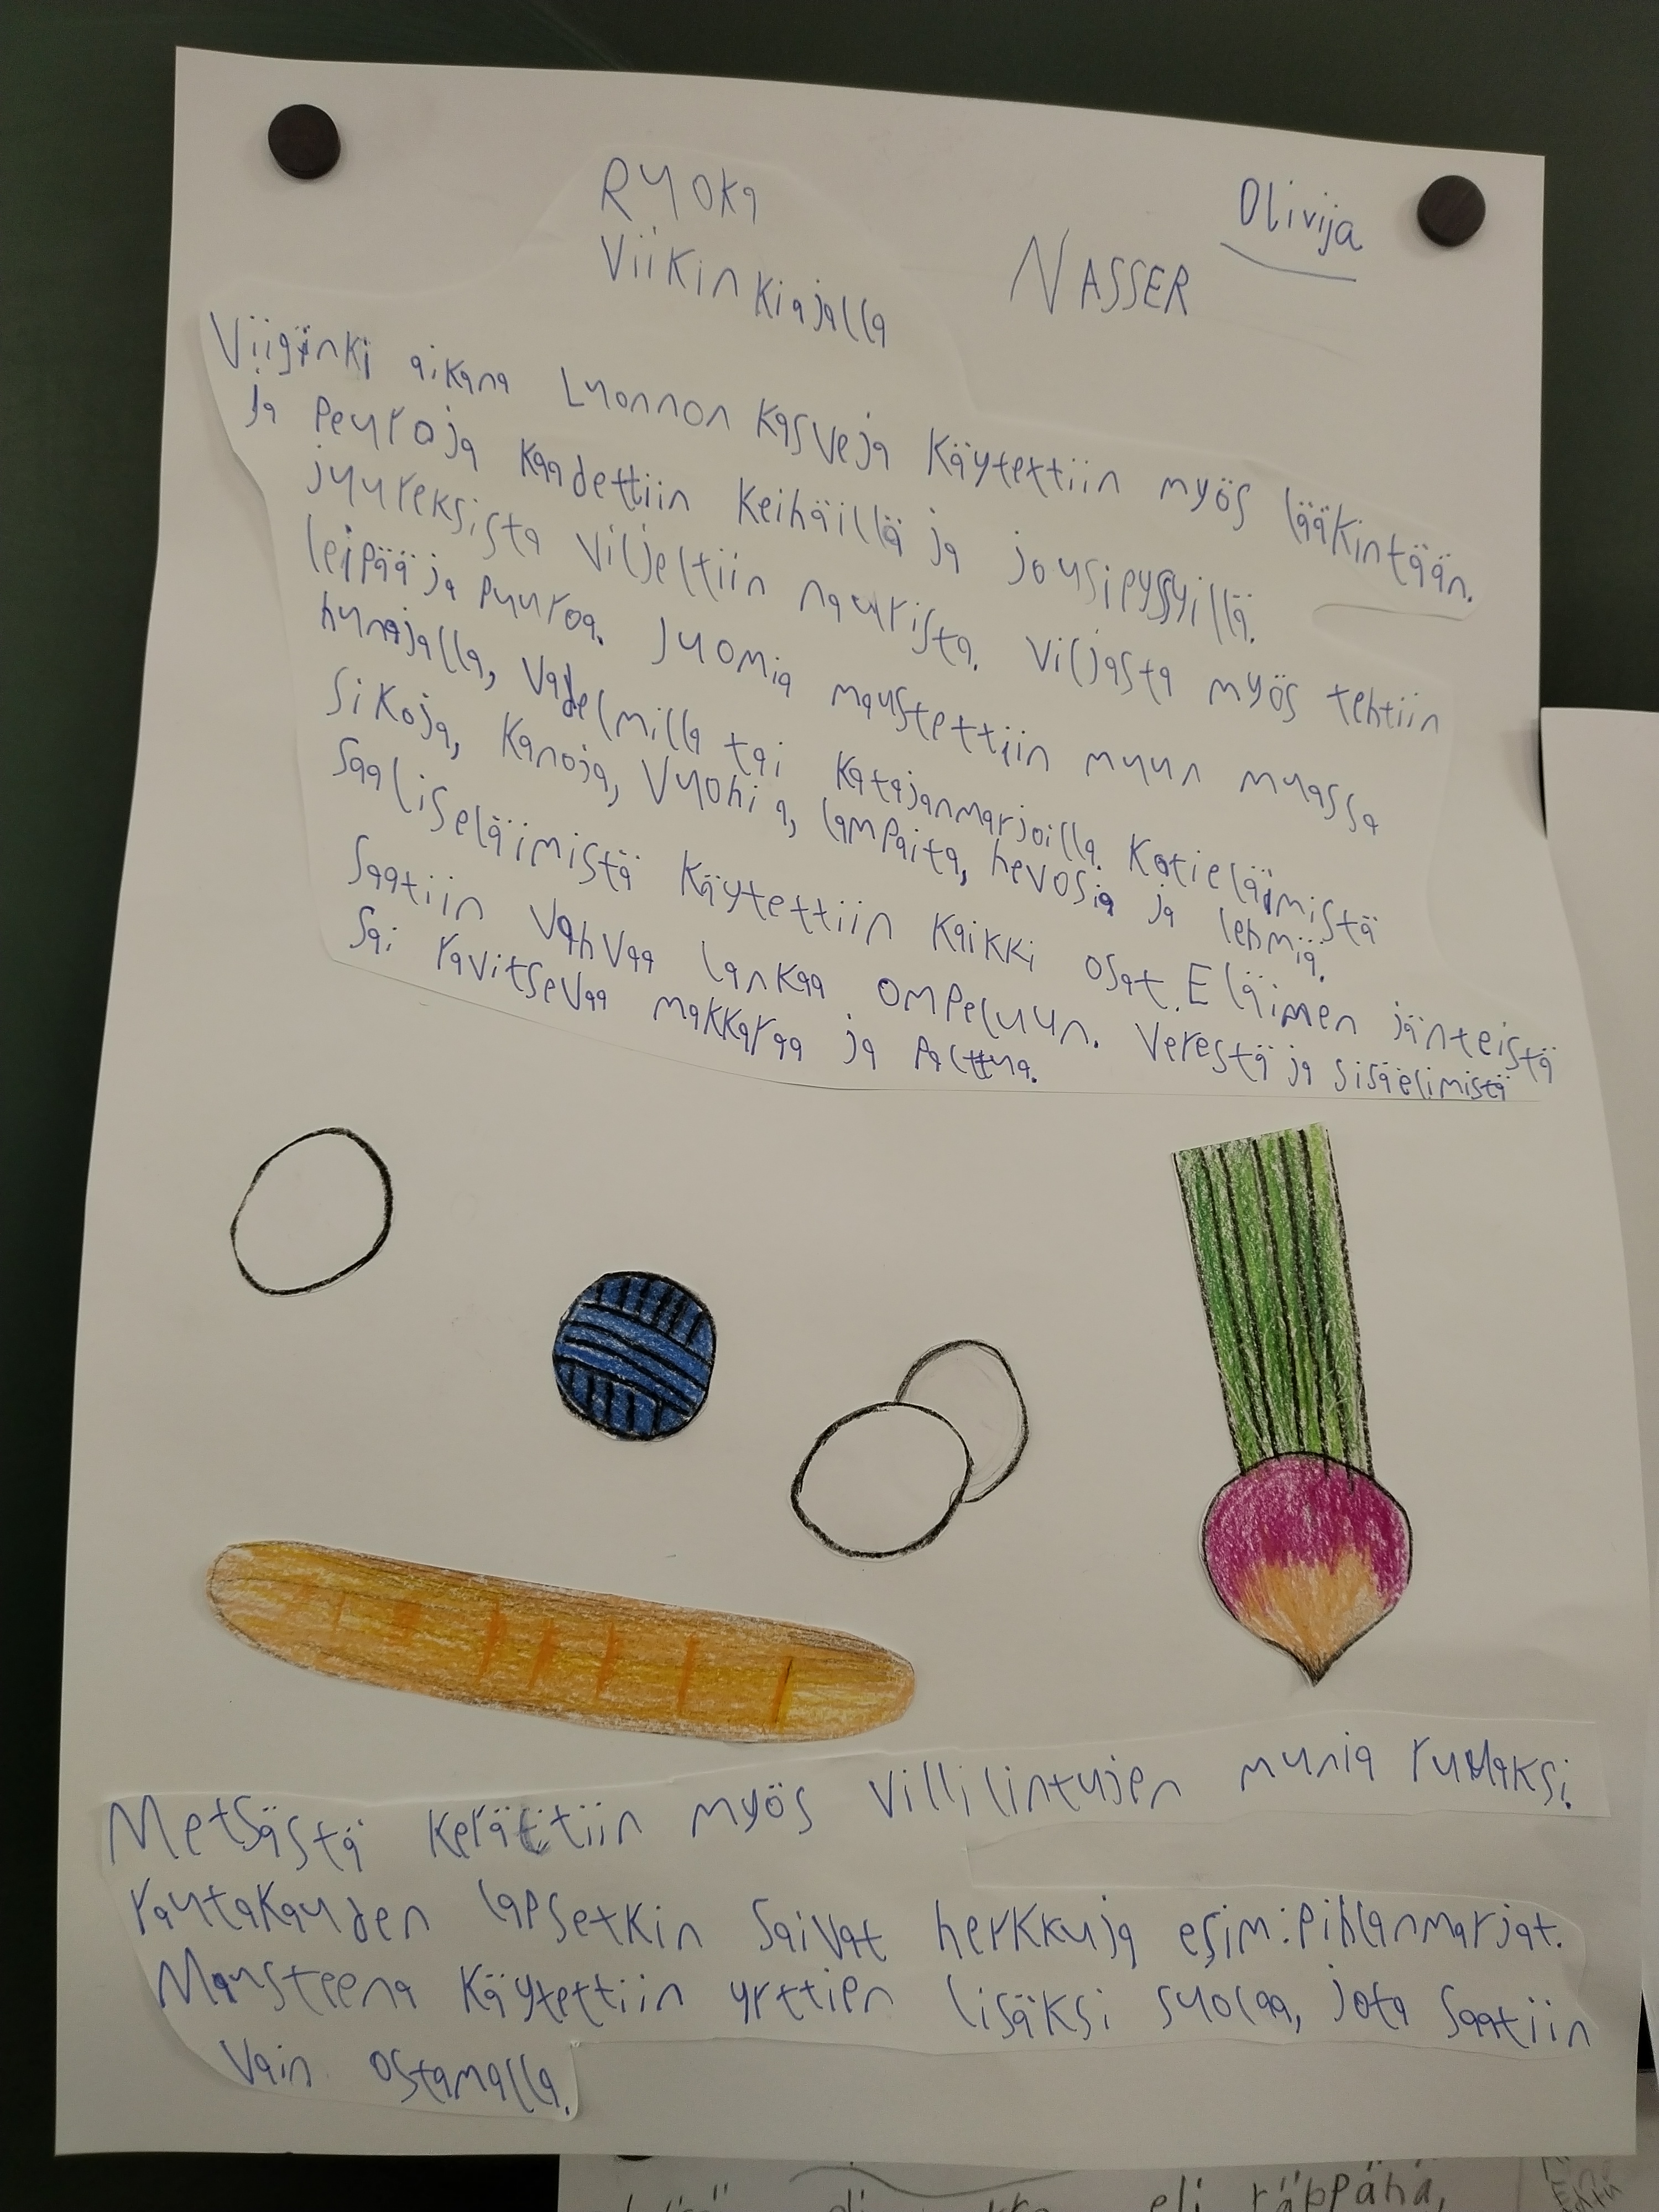 Ryoka
Viikinkiajalla
Olivija
NASSER
Viiginki aikana Luonnon kasveja käytettiin myös lääkintään.
ja peuroja kaadettiin keihäillä ja jousipyssyillä.
juureksista viljeltiin naurista. Viljasta myös tehtiin
leipää ja puuroa. Juomia maustettiin muun muassa
hunajalla, vadelmilla tai katajanmarjoilla. Kotieläimistä
sikoja, kanoja, vuohia, lampaita, hevosia ja lehmiä.
Saaliseläimistä käytettiin kaikki osat. Eläimen jänteistä
saatiin vahvaa lankaa ompeluun. Verestä ja sisäelimistä
sai ravitsevaa makkaraa ja palttua.
Metsästä kerättiin myös villilintujen munia
rautakauden lapsetkin saivat herkkuja esim: pihlanmarjat.
Mausteena käytettiin yrttien lisäksi suolaa, jota saatiin
vain ostamalla.
eli räppänä,